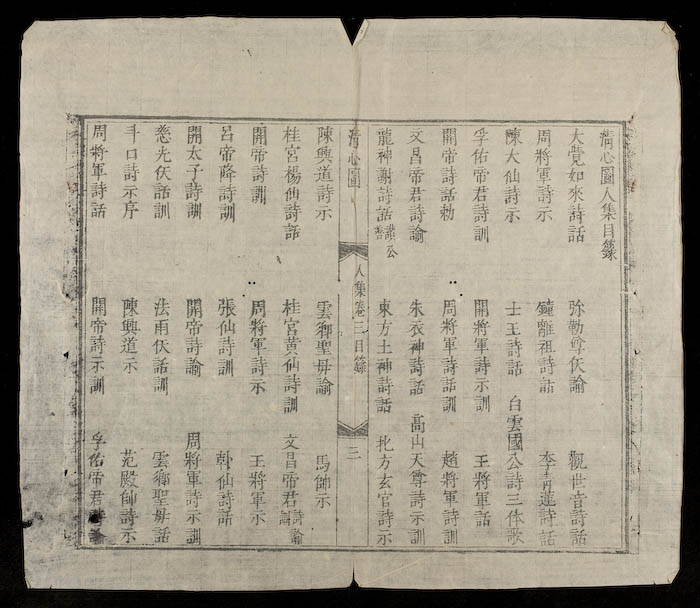 清心圖人集目錄
大覺如來詩話 弥勒尊仸諭 觀世音詩話
周將軍詩示 鐘離祖詩話 李青蓮詩話
陳大仙詩示 士王詩話 白雲國公詩三体歌
孚佑帝君詩訓 開將軍詩示訓 王將軍話
開帝詩話勅 周將軍詩話訓 趙將軍詩訓
文昌帝君詩諭 朱衣神詩話 高山天尊詩示訓
龍神謝詩話 公 東方土神詩話 北方玄官詩示
清心圖 人集卷三目錄 三
陳興道詩示 雲鄉聖母諭 馬帥示
桂宮楊仙詩話 桂宮黄仙詩訓 文昌帝君詩諭訓
開帝詩訓 周將軍詩示 王將軍示
呂帝降詩訓 張仙詩訓 韓仙詩話
開太子詩訓 開帝詩諭 周將軍詩示訓
慈光仸話訓 法雨仸話訓 雲鄉聖母話
斗口詩示序 陳興道示 范殿帥詩示
周將軍詩話 開帝詩示訓 孚佑帝君詩諭